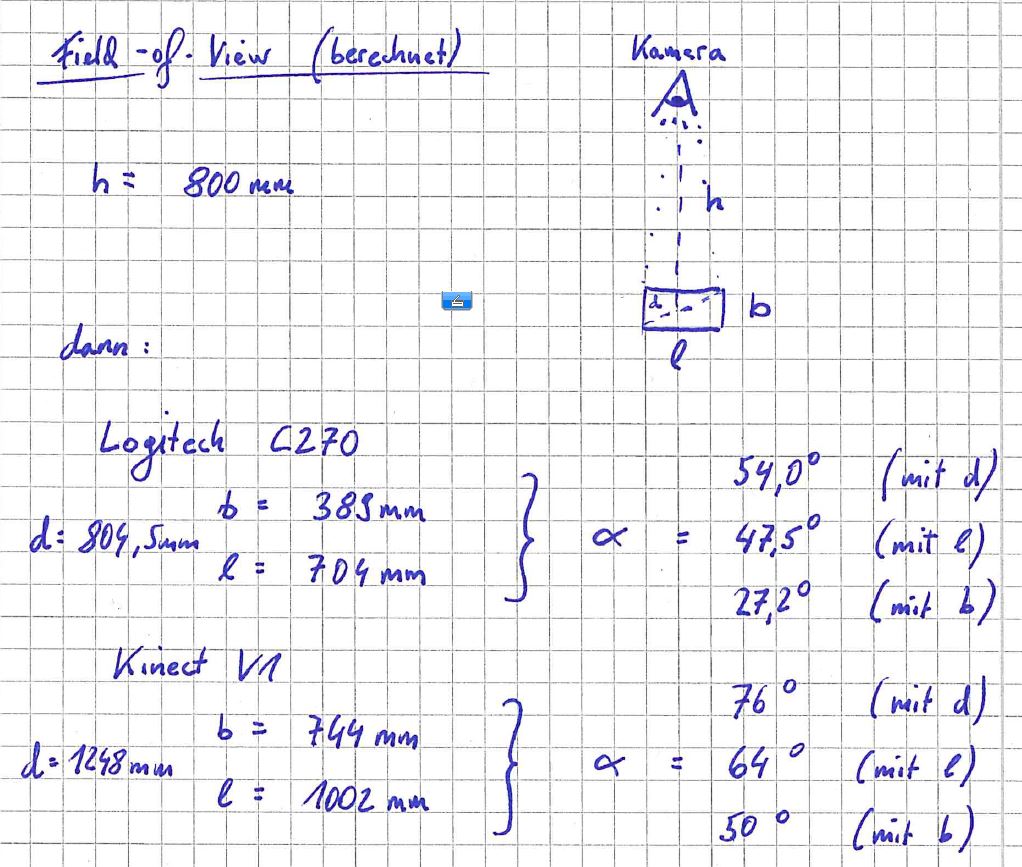 Field-of-View (berechnet)
Kamera
h = 800 mm
h
d
b
l
dann:
Logitech C270
b = 389 mm
d = 804,5mm
l = 704 mm
α =
54,0° (mit d)
47,5° (mit l)
27,2° (mit b)
Kinect V1
b = 744 mm
d = 1248 mm
l = 1002 mm
α =
76° (mit d)
64° (mit l)
50° (mit b)